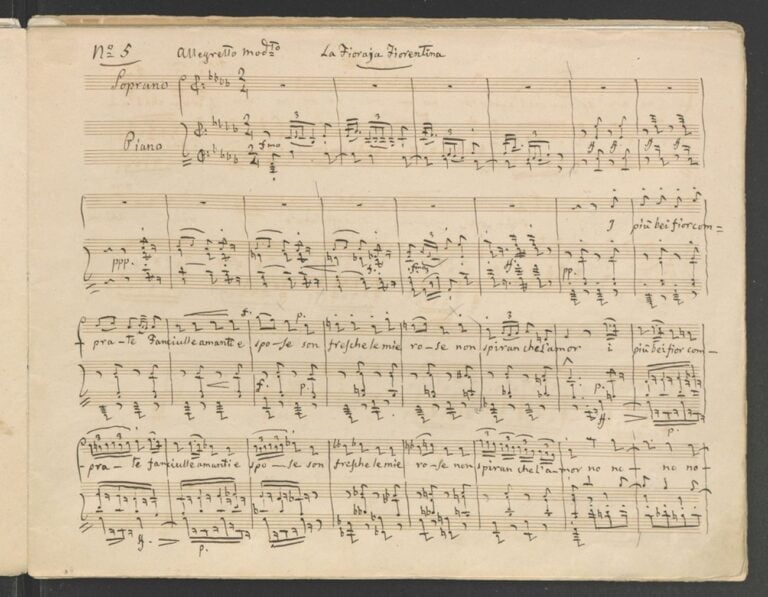 No 5 Allegretto modto La Fioraja Fiorentina
Soprano
Piano
fmo
ff ff ff ff
I più bei fior com=
ppp.
pp.
f. p.
pra-te fanciulle amanti e spo-se son fresche le mie ro-se non spiran che l'amor i più bei fior com-
f. p. p.
ff. p.
-pra-te fanciulle amanti e spo-se son fresche le mie ro-se non spiran che l'a-mor no no- no no-
ff. p.